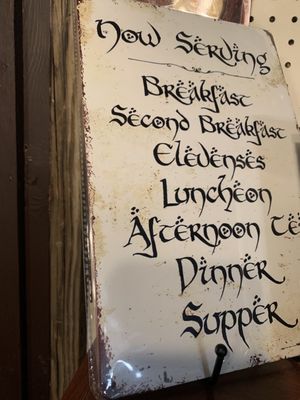 Now Serving
Breakfast
Second Breakfast
Elevenses
Luncheon
Afternoon Te
Dinner
Supper